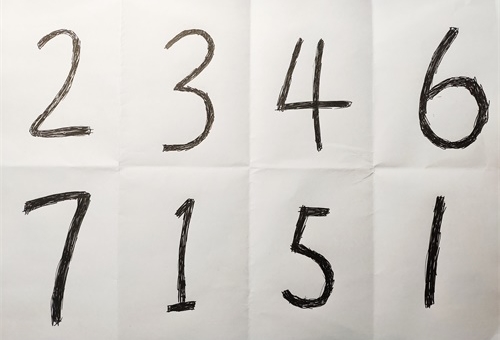 2 3 4 6
7 1 5 1